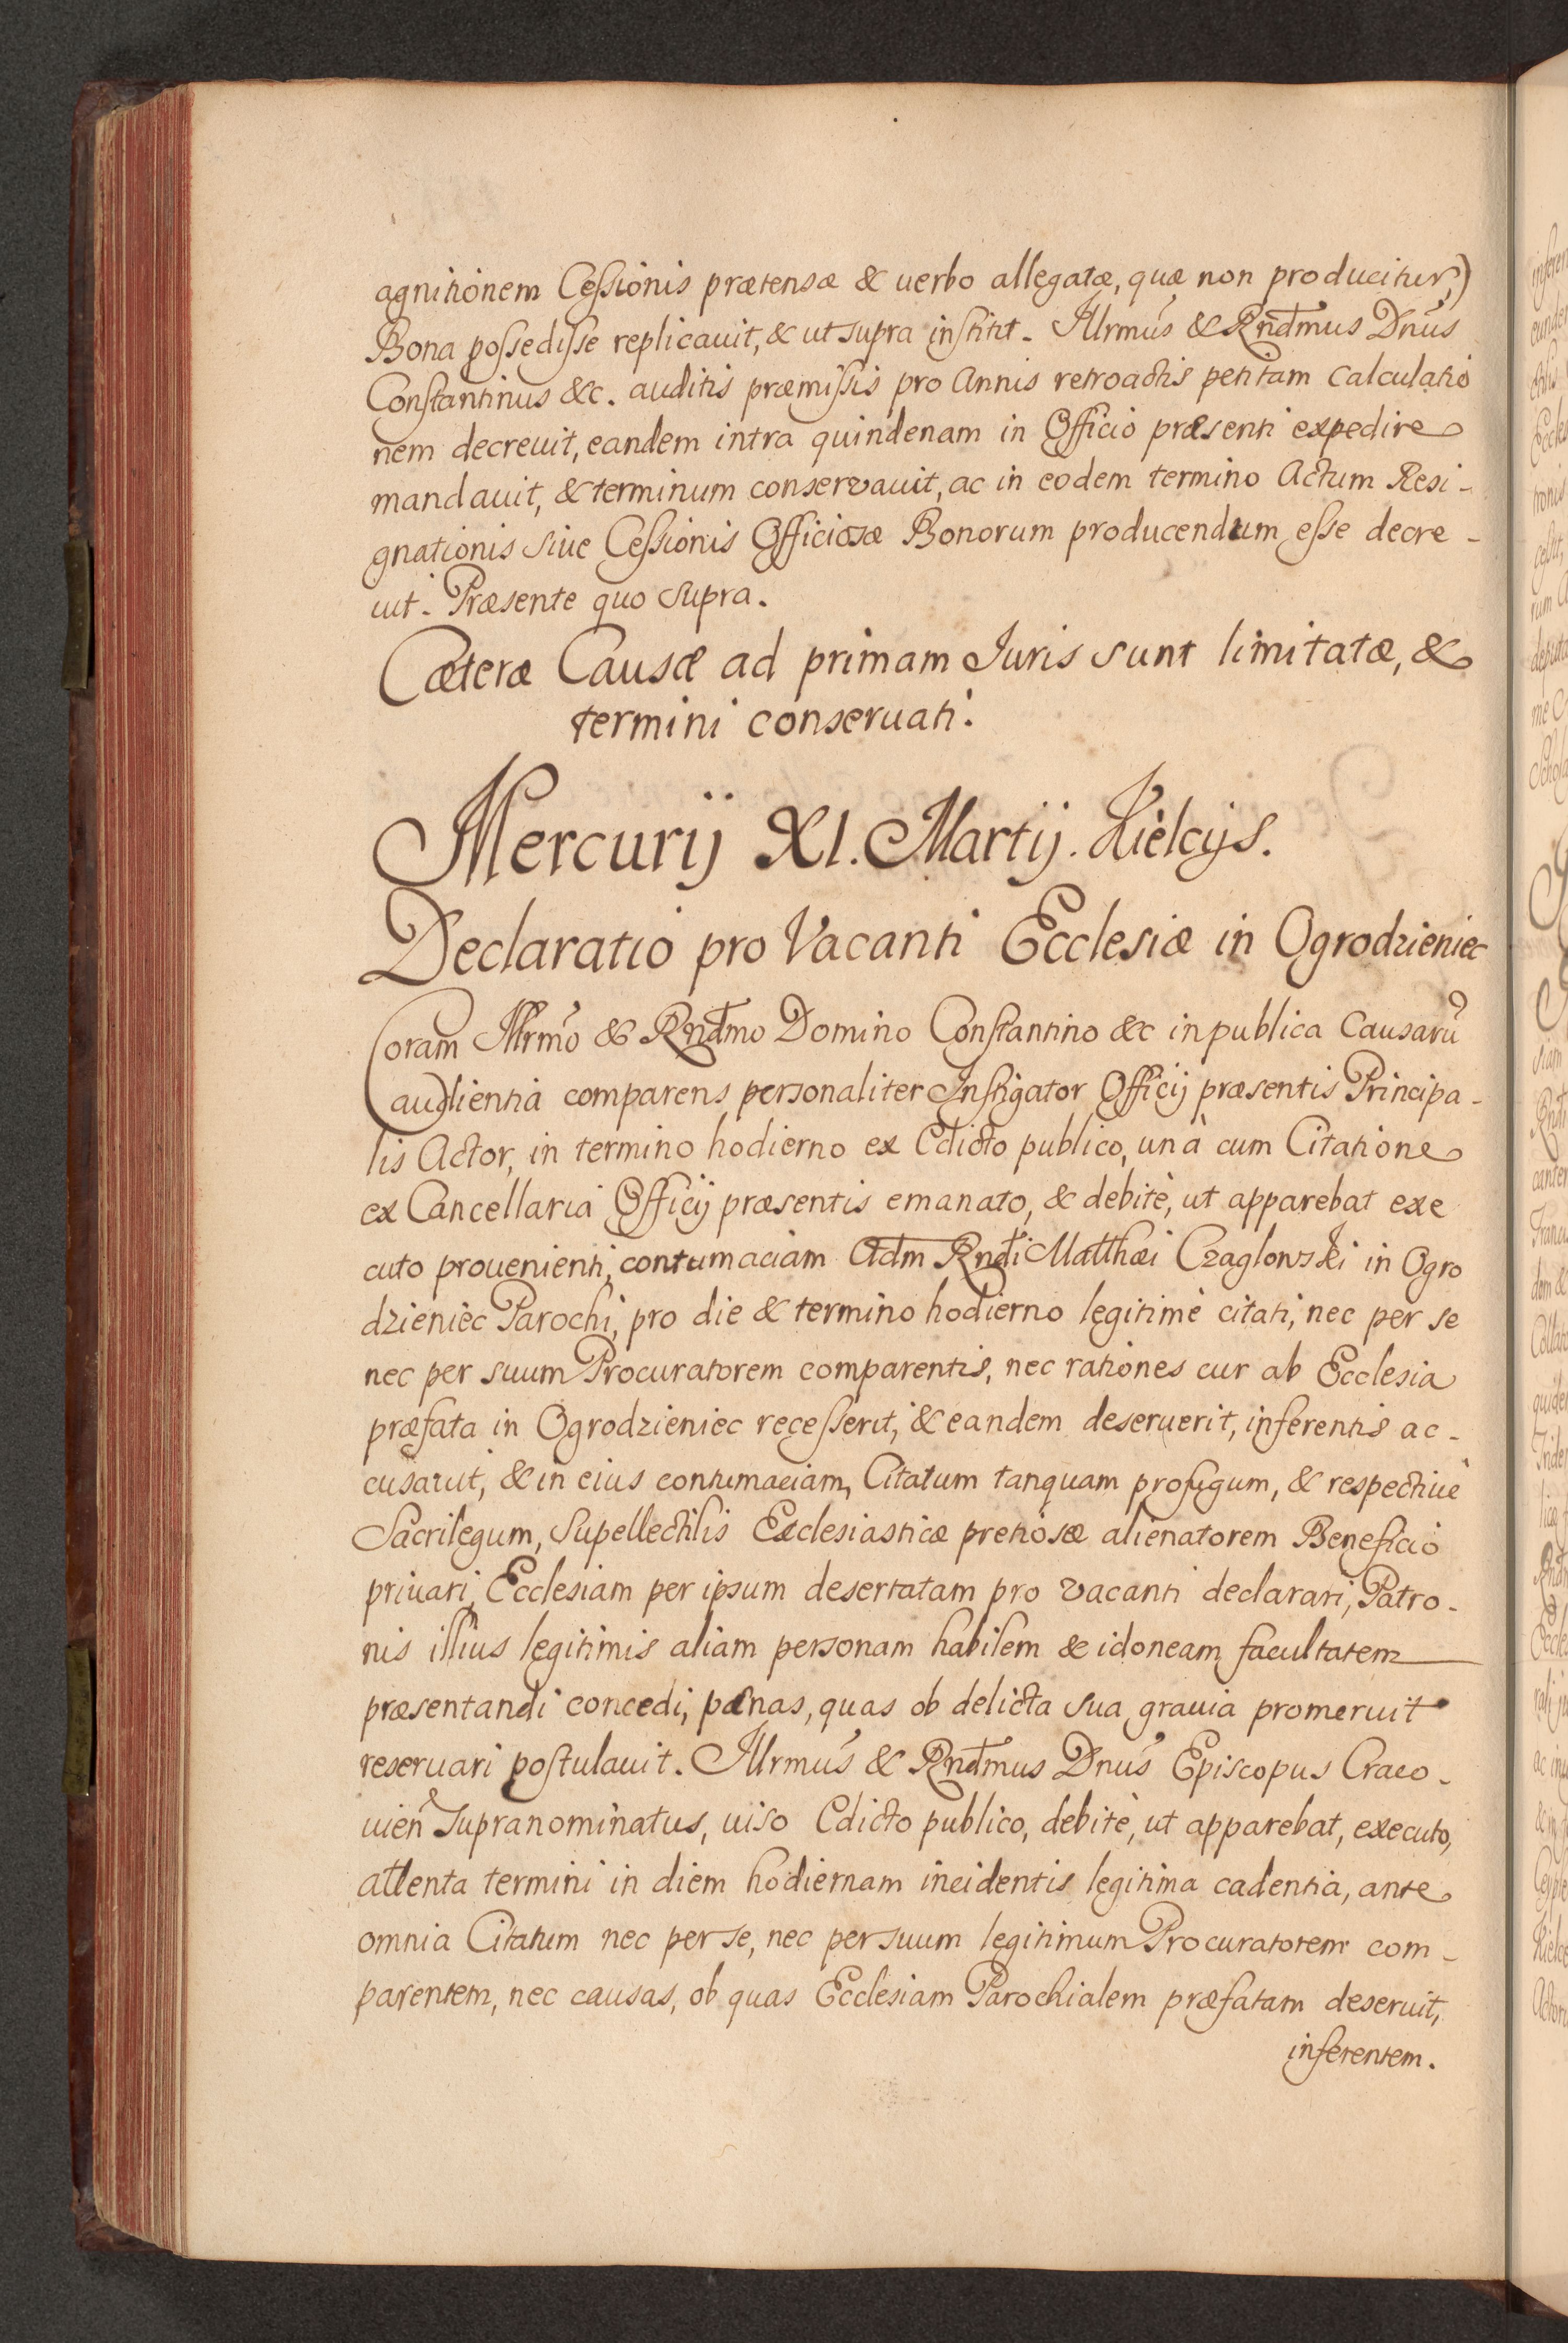 agnitionem Cessionis prætensæ & uerbo allegatæ, quæ non producitur,)
Bona possedisse replicauit, & ut supra institit. Illrmus & Rndmus Dnus
Constantinus &c. auditis præmissis pro Annis retroactis petitam calculatio
nem decreuit, eandem intra quindenam in Officio præsenti expedire
mandauit, & terminum conservauit, ac in eodem termino Actum Resi-
gnationis siue Cessionis Officiosæ Bonorum producendum esse decre-
uit. Præsente quo supra.
Cæteræ Causæ ad primam Iuris sunt limitatæ, &
termini conseruati.
Mercurij XI. Martij. Kielcijs.
Declaratio pro Vacanti Ecclesiæ in Ogrodzieniec
Coram Illrmo & Rndmo Domino Constantino &c in publica Causarũ
audientia comparens personaliter Instigator Officij præsentis Principa-
lis Actor, in termino hodierno ex Edicto publico, unà cum Citatione
ex Cancellaria Officij præsentis emanato, & debitè, ut apparebat exe
cuto prouenienti, contumaciam Adm Rndi Matthæi Czaglowski in Ogro
dzieniec Parochi, pro die & termino hodierno legitimè citati, nec per se
nec per suum Procuratorem comparentis, nec rationes cur ab Ecclesia
præfata in Ogrodzieniec recesserit, & eandem deseruerit, inferentis ac-
cusauit, & in eius contumaciam, Citatum tanquam profugum, & respectiuè
Sacrilegum, Supellectilis Ecclesiasticæ pretiosæ alienatorem Beneficio
priuari, Ecclesiam per ipsum desertatam pro vacanti declarari, Patro-
nis illius legitimis aliam personam habilem & idoneam facultatem
præsentandi concedi, pænas, quas ob delicta sua grauia promeruit
reseruari postulauit. Illrmus & Rndmus Dnus Episcopus Craco-
uien supranominatus, uiso Edicto publico, debitè, ut apparebat, executo,
attenta termini in diem hodiernam incidentis legitima cadentia, ante
omnia Citatum nec per se, nec per suum legitimum Procuratorem com-
parentem, nec causas, ob quas Ecclesiam Parochialem præfatam deseruit,
inferentem.